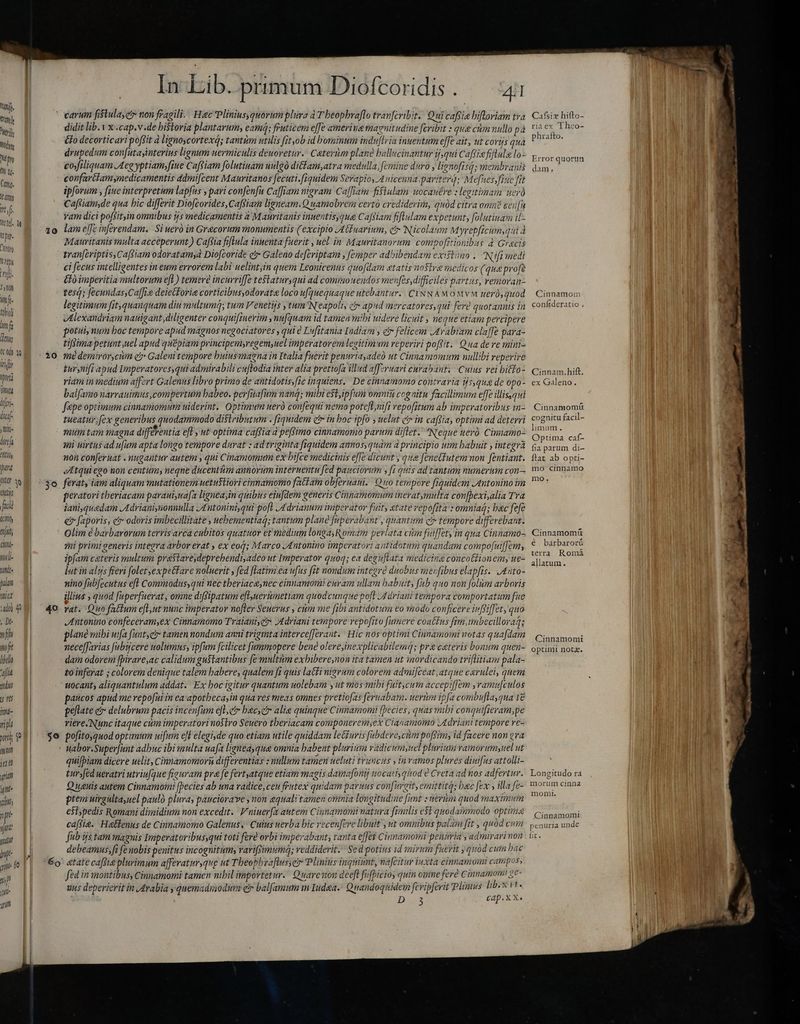 In Lib. primum Dioscoridis. 41
earum fistulas, & non fragili. Haec Plinius, quorum plura à Theophrasto transcribit. Qui cassiae historiam tra
didit lib. ix. cap. v. de historia plantarum, eamq; fruticem esse amerinae magnitudine scribit: quae cùm nullo pa
cto decorticari possit à ligno, cortexq; tantùm utilis sit, ob id hominum industria inuentum esse ait, ut corijs quà
drupedum consuta, interius lignum uermiculis deuoretur. Caeterùm planè hallucinantur ij, qui Cassiae fistulae lo-
co, siliquam Aegyptiam, siue Cassiam solutiuam uulgò dictam, atra medulla, semine duro, lignosisq; membranis
confarctam, medicamentis admiscent Mauritanos secuti. siquidem Serapio, Auicenna pariterq; Mesues, siue sit
ipsorum, siue interpretum lapsus, pari consensu Cassiam nigram Cassiam fistulam uocauêre: legitimam uerò
Cassiam, de qua hic disserit Dioscorides, Cassiam ligneam. Quamobrem certò crediderim, quòd citra omnẽ censu
ram dici possit, in omnibus ijs medicamentis à Mauritanis inuentis, quae Cassiam fistulam expetunt, solutiuam il-
10 lam esse inferendam. Si uerò in Graecorum monumentis (excipio Actuarium, & Nicolaum Myrepsicum, qui à
Mauritanis multa acceperunt) Cassia fistula inuenta fuerit, uel in Mauritanorum compositionibus à Graecis
transcriptis, Cassiam odoratam, à Dioscoride & Galeno descriptam, semper adhibendam existimo. Nisi medi
ci secus intelligentes in eum errorem labi uelint, in quem Leonicenus quosdam aetatis nostrae medicos (quae profe
ctò imperitia multorum est) temerè incurrisse testatur, qui ad commouendos menses, difficiles partus, remoran-
tesq; secundas, Cassiae delectoriae corticibus, odoratae loco usquequaque utebantur. CINNAMOMVM uerò, quod
legitimum sit, quanquam diu multumq; tum Venetijs, tum Neapoli, & apud mercatores, qui ferè quotannis in
Alexandriam nauigant, diligenter conquisiuerim, nusquam id tamen mihi uidere licuit, neque etiam percipere
potui, num hoc tempore apud magnos negociatores, qui è Lusitania Indiam, & felicem Arabiam classe para-
tissima petunt, uel apud quẽpiam principem, regem, uel imperatorem legitimum reperiri possit. Qua de re mini-
20 mè demiror, cùm & Galeni tempore huius magna in Italia fuerit penuria, adeò ut Cinnamomum nullibi reperire
tur, nisi apud Imperatores, qui admirabili custodia inter alia pretiosa illud asseruari curabant. Cuius rei histo-
riam in medium affert Galenus libro primo de antidotis, sic inquiens. De cinnamomo contraria ijs, quae de opo-
balsamo narrauimus, compertum habeo. persuasum nanq; mihi est, ipsum omniũ cognitu facillimum esse illis, qui
saepe optimum cinnamomum uiderint. Optimum uerò consequi nemo potest, nisi repositum ab imperatoribus in-
tueatur. sex generibus quodammodo distributum. siquidem & in hoc ipso, uelut & in cassia, optimi ad deterri
mum tam magna differentia est, ut optima cassia à pessimo cinnamomo parum distet. Neque uerò Cinnamo-
mi uirtus ad longum tempore durat: ad triginta siquidem annos, quàm à principio uim habuit, integrã
non conseruat. nugantur autem, qui Cinamomum ex hisce medicinis esse dicunt, quae senectutem non sentiant.
Atqui ego non centum, neque ducentûm annorum interuentu sed pauciorum, si quis ad tantùm numerum con-
30 ferat, iam aliquam mutationem uetustiori cinnamomo factam obseruaui. Quo tempore siquidem Antonino im
peratori theriacam paraui, uasa lignea, in quibus eiusdem generis Cinnamomum inerat, multa conspexi, alia Tra
iani, quaedam Adriani, nonnulla Antonini, qui post Adrianum imperator fuit, aetate reposita: omniaq; haec sese
& saporis, & odoris imbecillitate, uehementiaq; tantum planè superabant, quantum & tempore differebant.
Olim è barbarorum terris arca cubitos quatuor et medium longa, Romam perlata cùm fuisset, in qua Cinnamo-
mi primi generis integra arbor erat, ex eoq; Marco Antonino imperatori antidotum quandam composuissem,
ipsam caeteris multum praestare, deprehendi, adeo ut Imperator quoq; ea degustata medicinae concoctionem, ue-
lut in alijs fieri solet, expectare noluerit, sed statim ea usus sit nondum integrè duobus mensibus elapsis. Anto-
nino subsecutus est Commodus, qui nec theriacae, nec cinnamomi curam ullam habuit, sub quo non solùm arboris
illius, quod superfuerat, omne dissipatum est, uerùmetiam quodcunque post Adriani tempora comportatum fue
40 rat. Quo factum est, ut nunc imperator noster Seuerus, cùm me sibi antidotum eo modo conficere iussisset, quo
Antonino confeceram, ex Cinnamomo Traiani, & Adriani tempore reposito sumere coactus sim, imbecilloraq;
planè mihi uisa sunt, & tamen nondum anni triginta intercesserant. Hic nos optimi Cinnamomi notas quasdam
necessarias subijcere uolumus, ipsum scilicet summopere benè olere, inexplicabilemq; prae caeteris bonum quen-
dam odorem spirare, ac calidum gustantibus se multùm exhibere, non ita tamen ut mordicando tristitiam pala-
to inferat; colorem denique talem habere, qualem si quis lacti nigrum colorem admisceat, atque caerulei, quem
uocant, aliquantulum addat. Ex hoc igitur quantum uolebam, ut mos mihi fuit, cum accepissem, ramusculos
paucos apud me reposui in ea apotheca, in qua res meas omnes pretiosas seruabam: uerùm ipsa combusta, qua tẽ
pestate & delubrum pacis incensum est, & haec, & aliae quinque Cinnamomi species, quas mihi conquisieram, pe
riere. Nunc itaque cùm imperatori nostro Seuero theriacam componerem, ex Cinnamomo Adriani tempore re-
50 posito, quod optimum uisum est elegi, de quo etiam utile quiddam lecturis subdere, cùm possim, id facere non gra
uabor. Supersunt adhuc ibi multa uasa lignea, quae omnia habent plurium radicum, uel plurium ramorum, uel ut
quispiam dicere uelit, Cinnamomorũ differentias: nullum tamen ueluti truncus, in ramos plures diuisus attolli-
tur, sed ueratri utriusque figuram prae se fert, atque etiam magis damasonij uocati, quod è Creta ad nos adfertur.
Quamuis autem Cinnamomi species ab una radice, ceu frutex quidam paruus consurgit, emittitq; haec sex, illa se-
ptem uirgulta, uel paulò plura, paucioraue, non aequali tamen omnia longitudine sunt: uerùm quod maximum
est, pedis Romani dimidium non excedit. Vniuersa autem Cinnamomi natura similis est quodammodo optimae
cassiae. Hactenus de Cinnamomo Galenus. Cuius uerba hic recensere libuit, ut omnibus palàm sit, quòd cum
sub ijs tam magnis Imperatoribus, qui toti ferè orbi imperabant, tanta esset Cinnamomi penuria, admirari non
debeamus, si se nobis penitus incognitum, rarissimumq; reddiderit. Sed potius id mirum fuerit, quòd cum hac
60 aetate cassiae plurimum asseratur, quae ut Theophrastus, & Plinius inquiunt, nascitur iuxta cinnamomi campos,
sed in montibus, Cinnamomi tamen nihil importetur. Quare non deest suspicio, quin omne ferè Cinnamomi ge-
nus deperierit in Arabia, quemadmodum & balsamum in Iudaea. Quandoquidem scripserit Plinius lib. xij.
D 3 cap. xx.
Cassiae histo-
ria ex Theo-
phrasto.
Error quorun
dam.
Cinnamomi
consideratio.
Cinnam. hist.
ex Galeno.
Cinnamomũ
cognitu facil-
limum.
Optima cas-
sia parum di-
stat ab opti-
mo cinnamo
mo.
Cinnamomũ
è barbarorũ
terra Romã
allatum.
Cinnamomi
optimi notae.
Longitudo ra
morum cinna
momi.
Cinnamomi
penuria unde
sit.